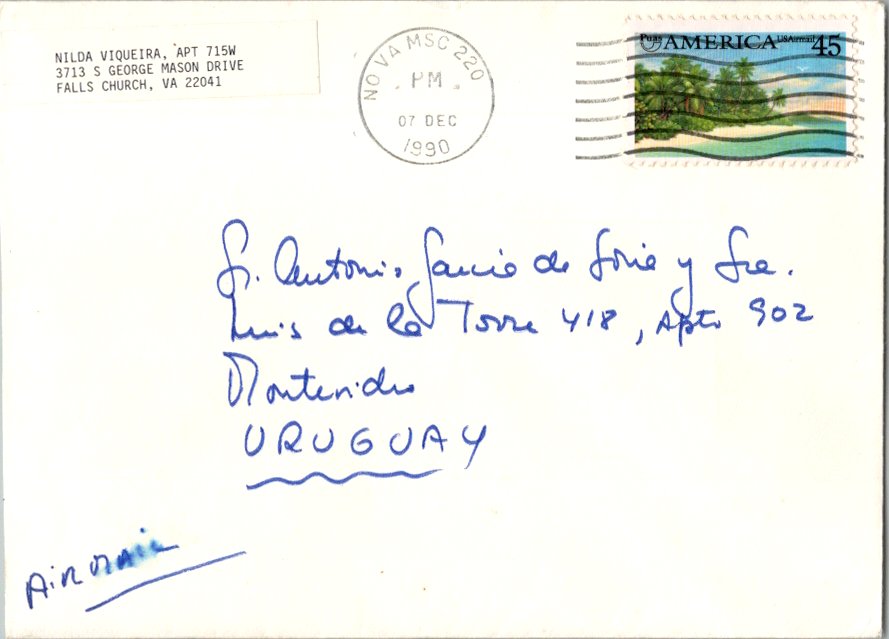 NILDA VIQUEIRA, APT 715W
3713 S GEORGE MASON DRIVE
FALLS CHURCH, VA 22041
NO VA MSC 220
PM
07 DEC
1990
PUAS AMERICA USAirmail 45
Sr. Antonio García de Soria y Sra.
Luis de la Torre 418, Apto 902
Montevideo
URUGUAY
AIR MAIL